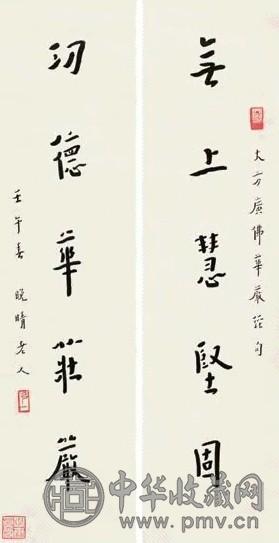 大方廣佛華嚴經句
無上慧堅固
功德華莊嚴
壬午春 晚晴老人
中华收藏网
www.pmv.cn